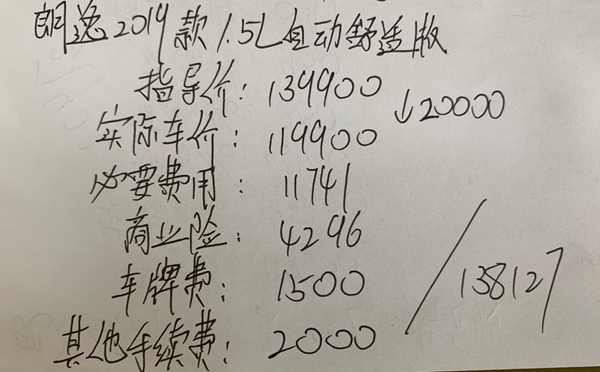 朗逸2019款1.5L自动舒适版
指导价：139900
↓20000
实际车价：119900
必要费用：11741
商业险：4296
车牌费：1500
138127
其他手续费：2000